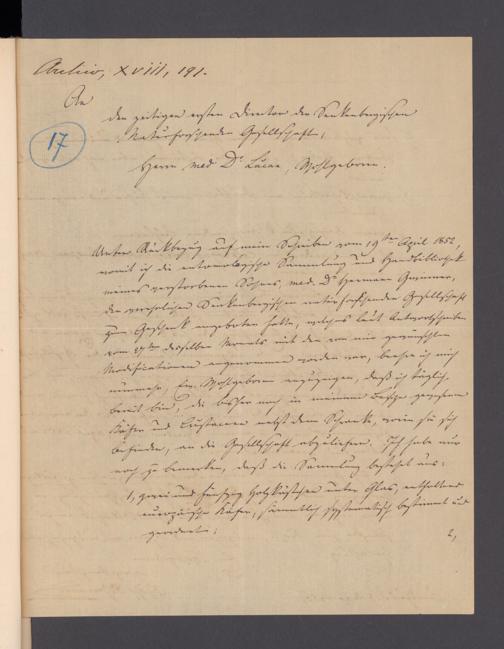 Archiv, XVIII, 191.
An
den zeitigen ersten Director der Senkenbergischen
17
Naturforschenden Gesellschaft,
Herrn med. Dr. Lucae, Wohlgeboren.
Unter Rückbezug auf mein Schreiben vom 19ten April 1852,
womit ich die entomologische Sammlung und Handbibliothek
meines verstorbenen Sohnes, med. Dr. Hermann
der verehrlichen Senkenbergischen naturforschenden Gesellschaft
zum Geschenk angeboten hatte, welches laut Antwortschreiben
vom desselben Monats mit den von mir gewünschten
Modificationen angenommen worden war, beehre ich mich
nunmehr, Ew. Wohlgeboren anzuzeigen, daß ich täglich
bereit bin, die bisher noch in meinem Besitze gewesenen
Käfer und nebst dem Schrank, worin sie sich
befinden, an die Gesellschaft abzuliefern. Ich habe nur
noch zu bemerken, daß die Sammlung besteht aus:
1, zwei und fünfzig Holzkästchen unter Glas, enthaltend
europäische Käfer, sämmtlich systematisch bestimmt und
geordnet;
2,